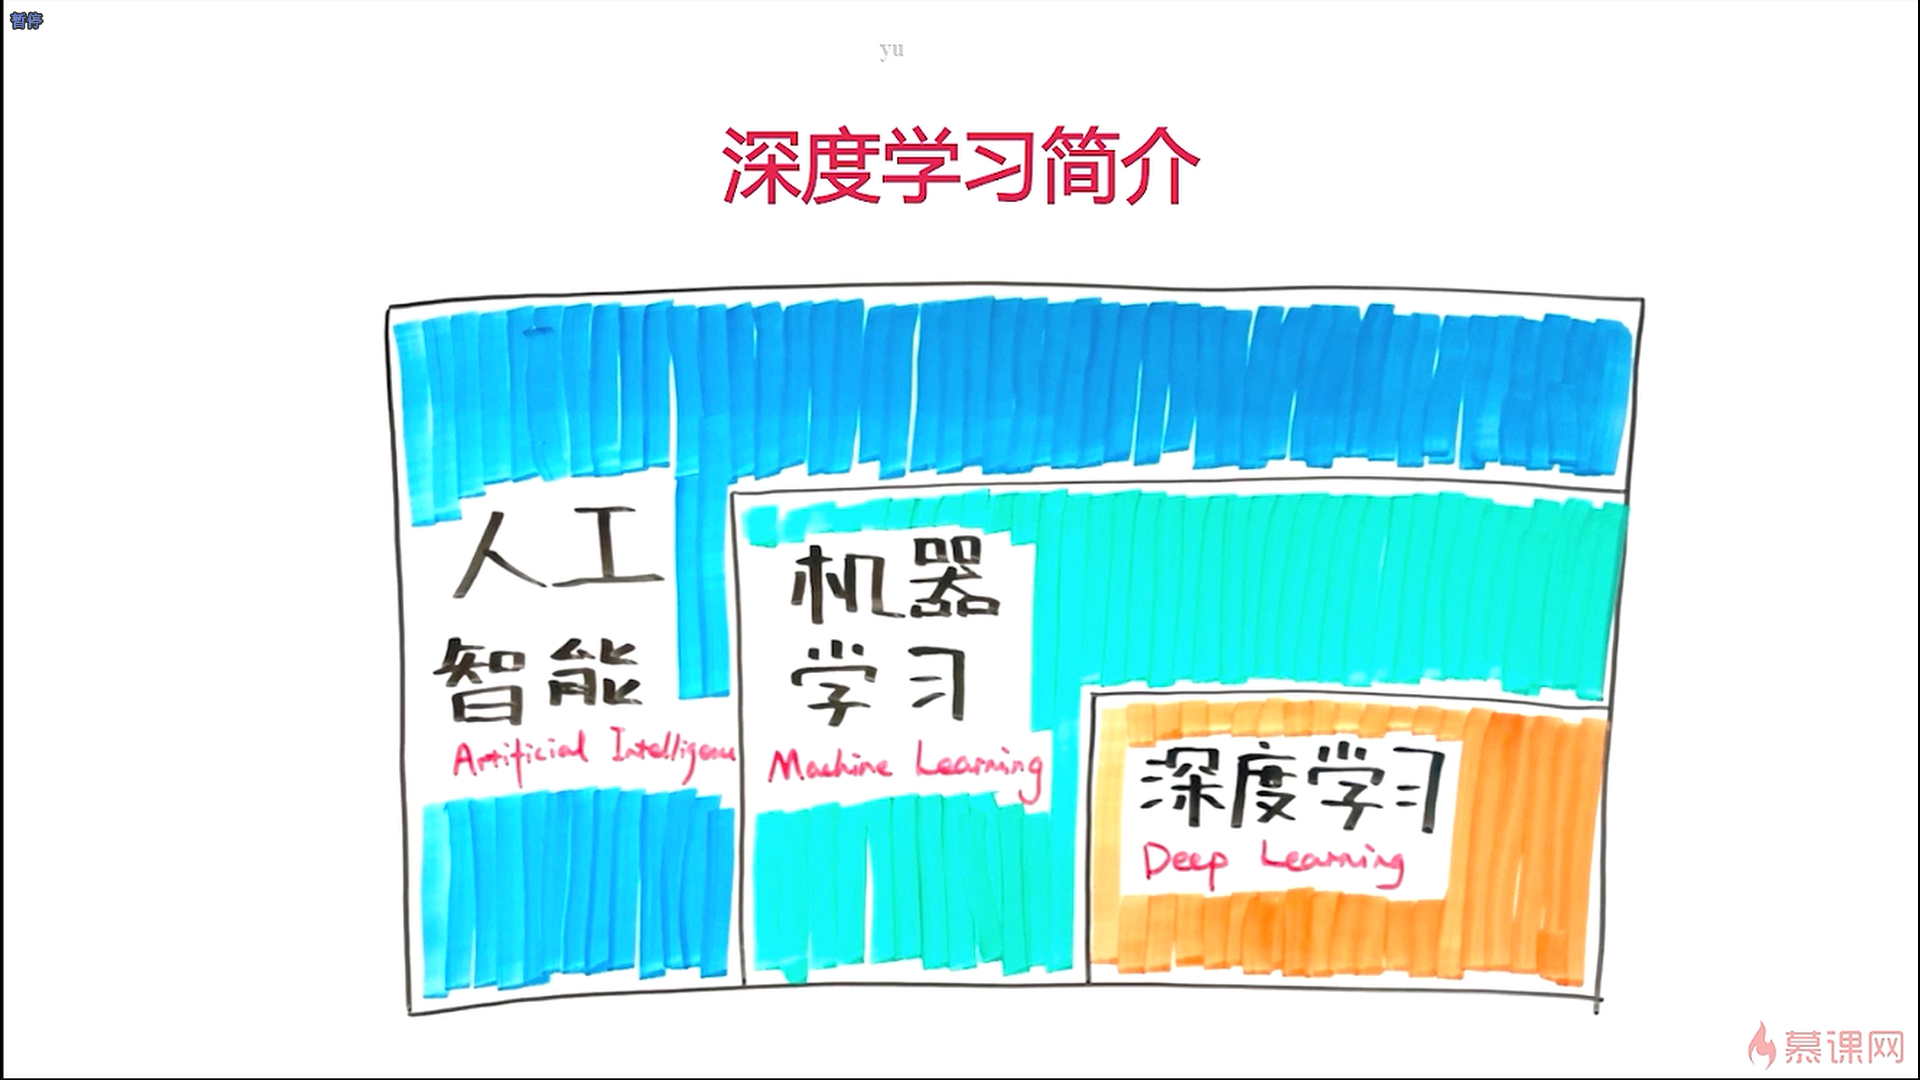 暂停
yu
深度学习简介
人工
智能
Artificial Intelligence
机器
学习
Machine Learning
深度学习
Deep Learning
慕课网